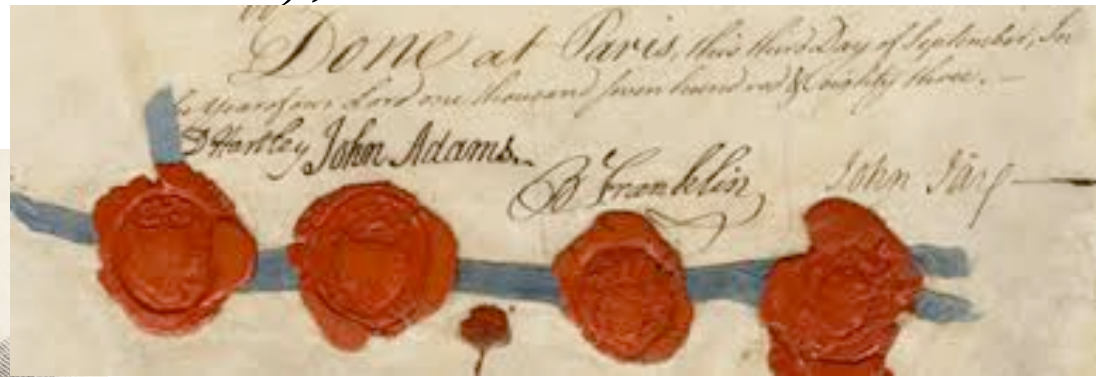 Done at Paris, this third Day of September, In
Year of our Lord one thousand seven hundred & eighty three.—
D Hartley John Adams. B Franklin John Jay